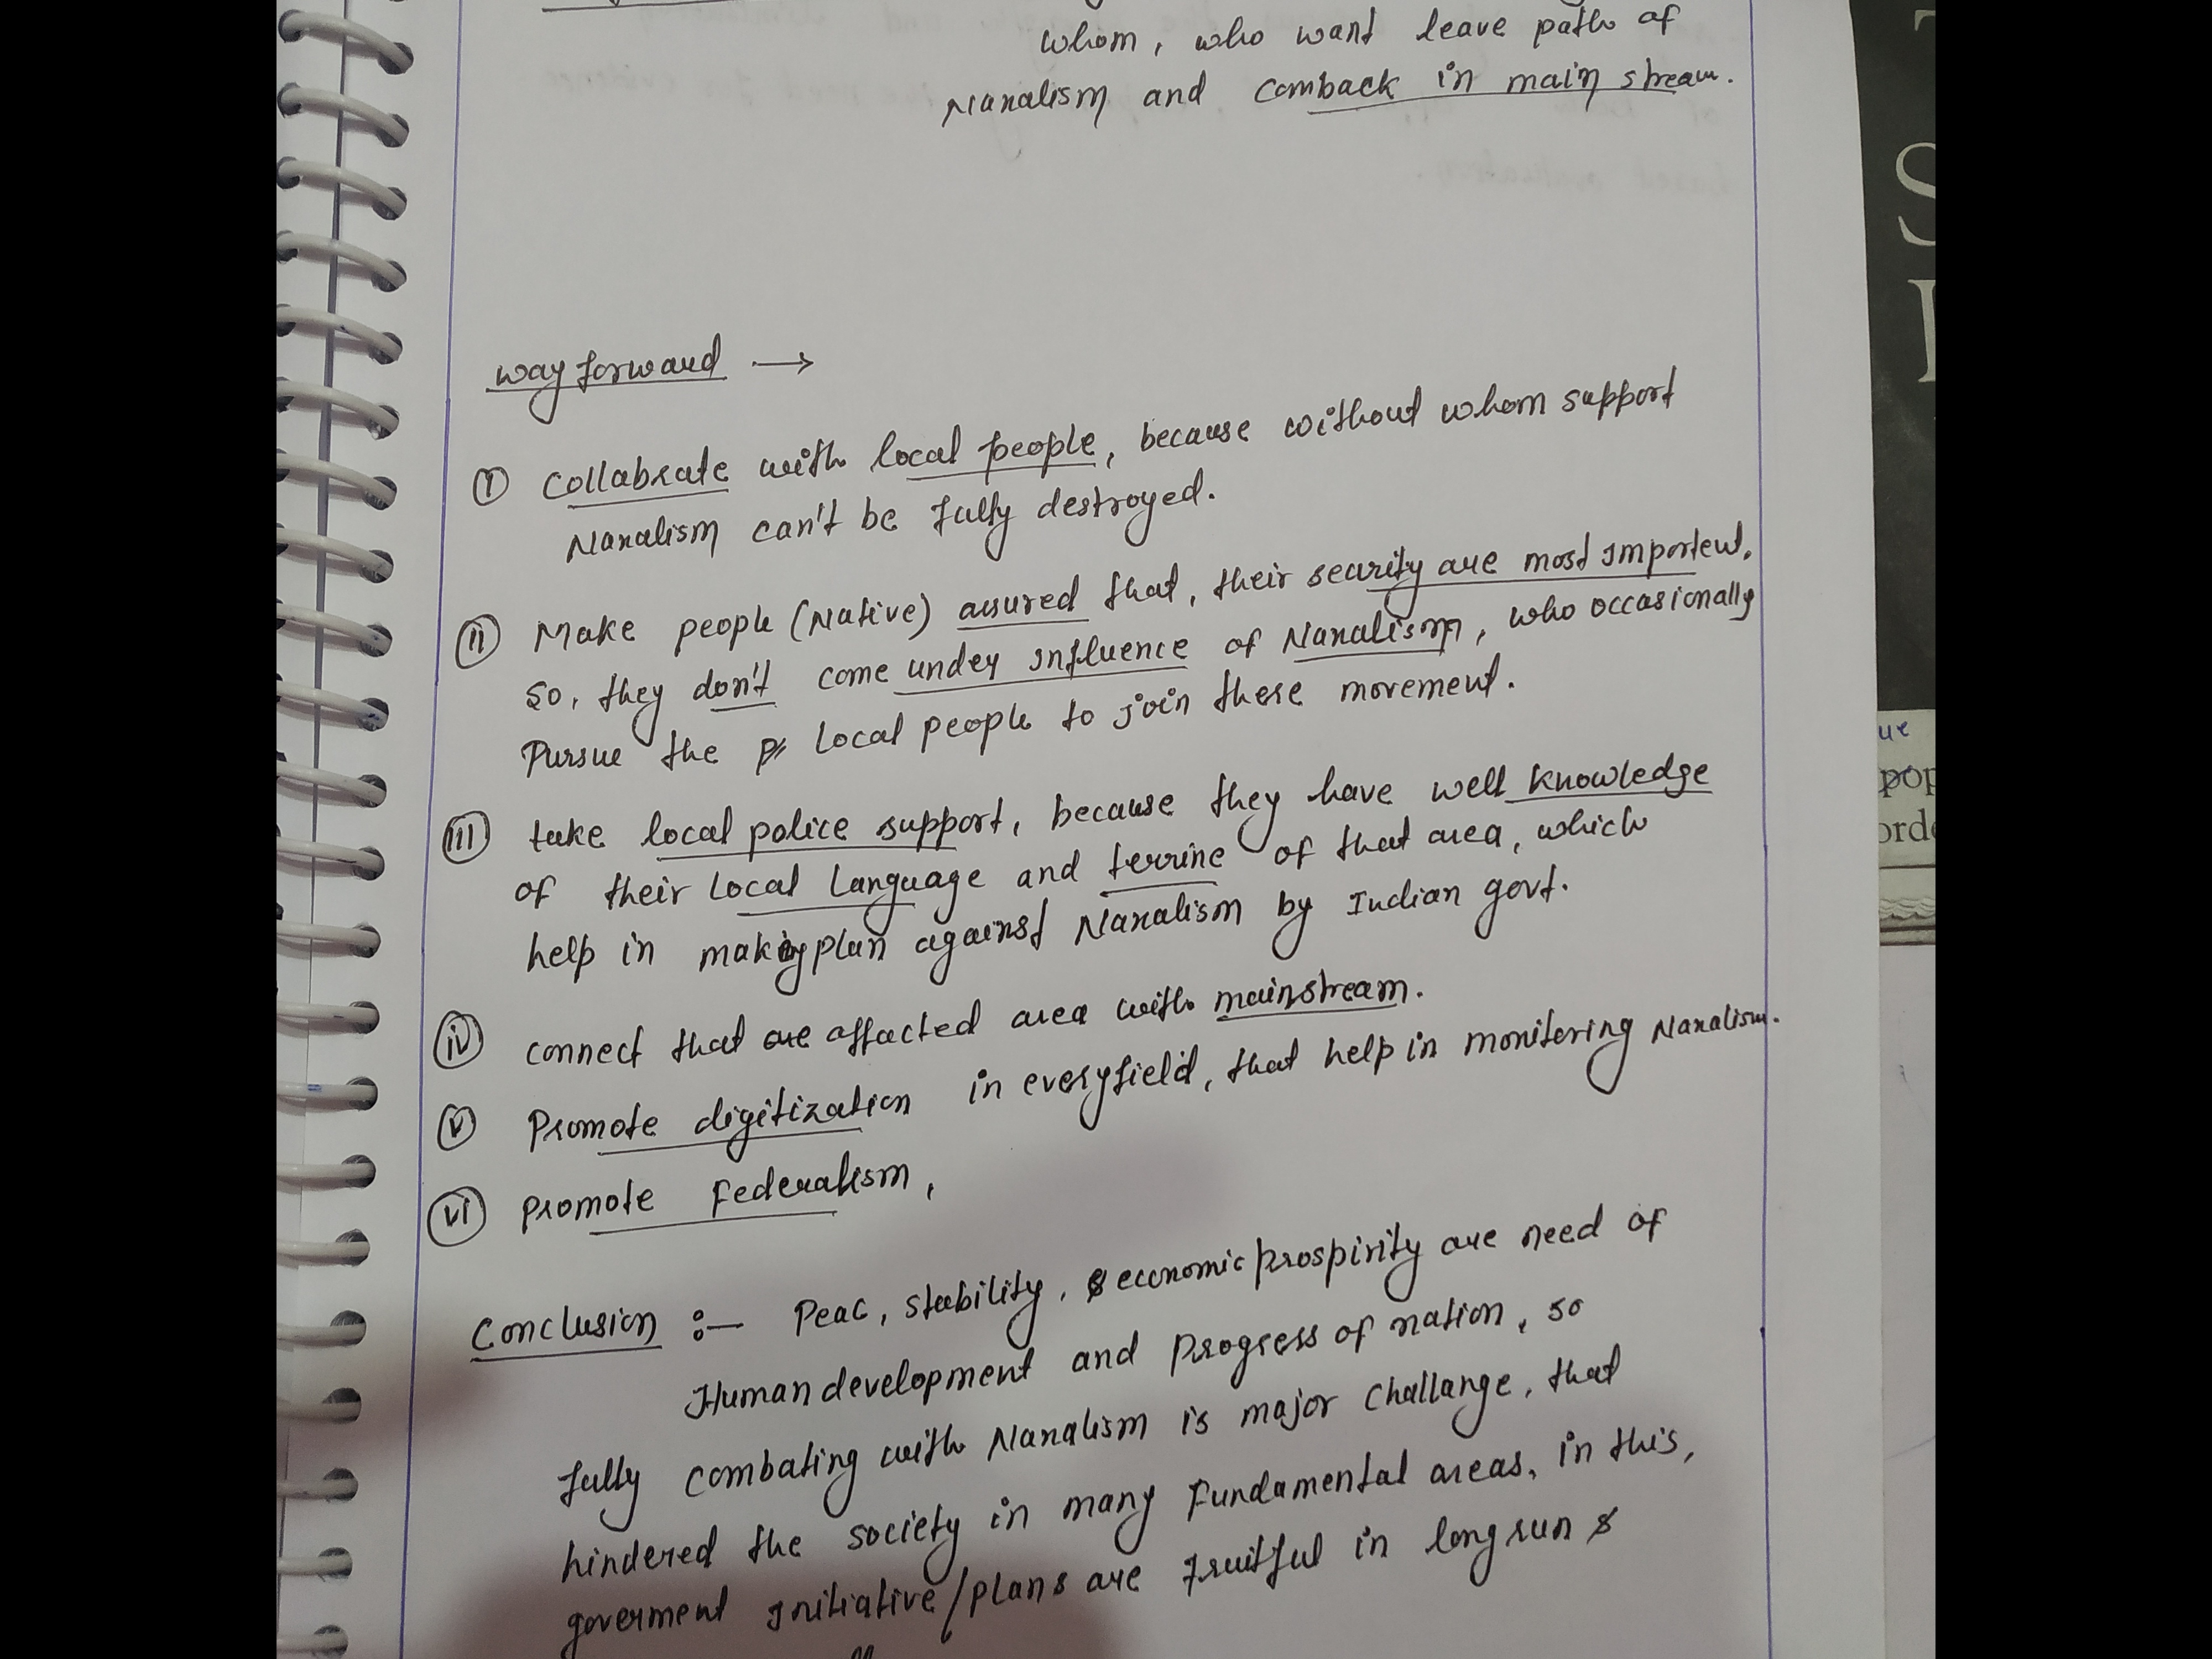 whom, who want leave path of
Naxalism and comback in main stream.
way forward →
(I) collabrate with local people, because without whom support
Naxalism can't be fully destroyed.
(II) Make people (Native) assured that, their security are most importent,
so, they don't come under influence of Naxalism, who occasionally
Pursue the local people to join these movement.
(III) take local police support, because they have well knowledge
of their local language and terrine of that area, which
help in making plan against Naxalism by Indian govt.
(iv) connect that are affacted area with mainstream.
(v) Promote digitization in everyfield, that help in monitering Naxalism.
(vi) promote Federalism,
Conclusion :— Peac, stability, & economic prospirity are need of
Human development and progress of nation, so
fully combating with Naxalism is major challange, that
hindered the society in many Fundamental areas, in this,
goverment initiative/plans are fruitful in long run &
ue
pop
orde